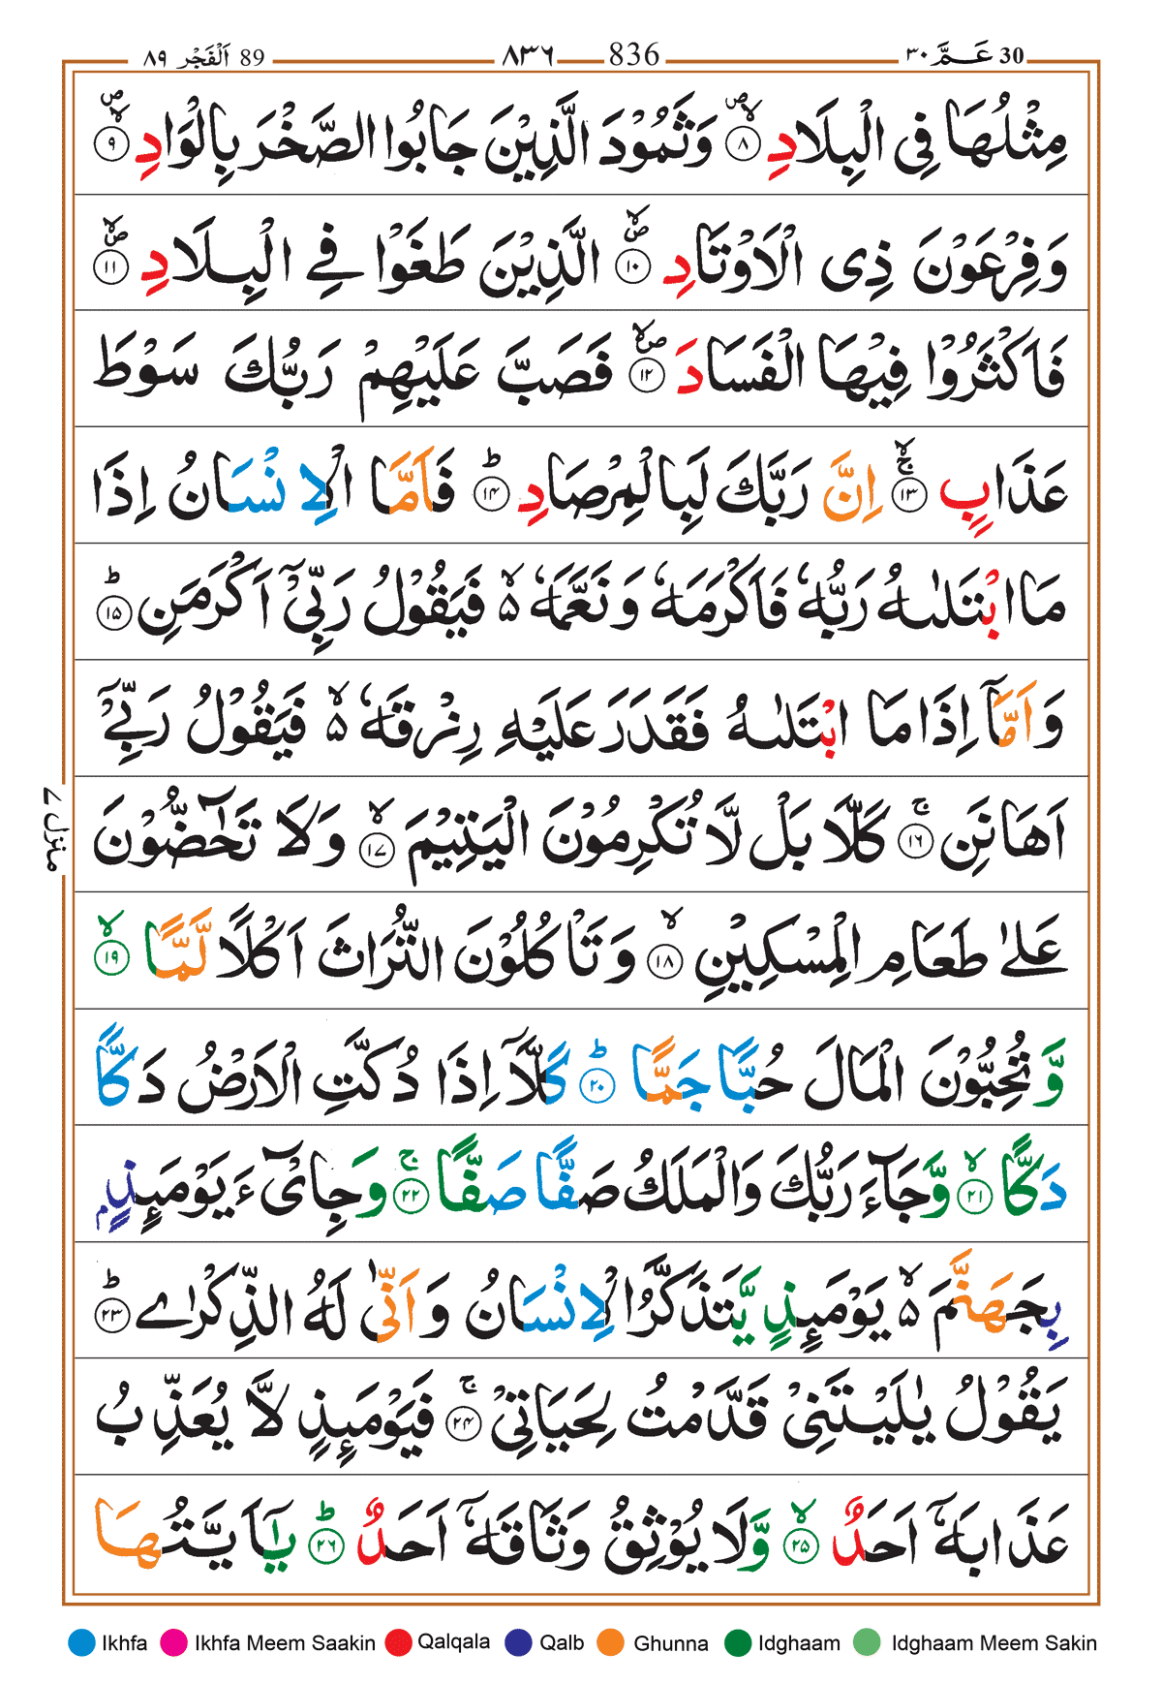 30 عَـمَّ ٣٠ 836 ٨٣٦ 89 اَلْفَجْر ٨٩
مِثْلُهَا فِی الْبِلَادِ ۪ۙ ﴿۸﴾ وَثَمُوْدَ الَّذِیْنَ جَابُوا الصَّخْرَ بِالْوَادِ ۪ۙ ﴿۹﴾
وَفِرْعَوْنَ ذِی الْاَوْتَادِ ۪ۙ ﴿۱۰﴾ الَّذِیْنَ طَغَوْا فِی الْبِلَادِ ۪ۙ ﴿۱۱﴾
فَاَكْثَرُوْا فِیْهَا الْفَسَادَ ۪ۙ ﴿۱۲﴾ فَصَبَّ عَلَیْهِمْ رَبُّكَ سَوْطَ
عَذَابٍ ۚۙ ﴿۱۳﴾ اِنَّ رَبَّكَ لَبِالْمِرْصَادِ ؕ ﴿۱۴﴾ فَاَمَّا الْاِنْسَانُ اِذَا
مَا ابْتَلٰىهُ رَبُّهٗ فَاَكْرَمَهٗ وَ نَعَّمَهٗ ۙ۬ فَیَقُوْلُ رَبِّیْۤ اَكْرَمَنِ ؕ ﴿۱۵﴾
وَ اَمَّاۤ اِذَا مَا ابْتَلٰىهُ فَقَدَرَ عَلَیْهِ رِزْقَهٗ ۙ۬ فَیَقُوْلُ رَبِّیْۤ
اَهَانَنِ ۚ ﴿۱۶﴾ كَلَّا بَلْ لَّا تُكْرِمُوْنَ الْیَتِیْمَ ۙ ﴿۱۷﴾ وَلَا تَحٰٓضُّوْنَ
عَلٰی طَعَامِ الْمِسْكِیْنِ ۙ ﴿۱۸﴾ وَ تَاْكُلُوْنَ التُّرَاثَ اَكْلًا لَّمًّا ۙ ﴿۱۹﴾
وَّ تُحِبُّوْنَ الْمَالَ حُبًّا جَمًّا ؕ ﴿۲۰﴾ كَلَّاۤ اِذَا دُكَّتِ الْاَرْضُ دَكًّا
دَكًّا ۙ ﴿۲۱﴾ وَّجَآءَ رَبُّكَ وَالْمَلَكُ صَفًّا صَفًّا ۚ ﴿۲۲﴾ وَجِایْٓءَ یَوْمَىِٕذٍۭ
بِجَهَنَّمَ ۙ۬ یَوْمَىِٕذٍ یَّتَذَكَّرُ الْاِنْسَانُ وَ اَنّٰی لَهُ الذِّكْرٰی ؕ ﴿۲۳﴾
یَقُوْلُ یٰلَیْتَنِیْ قَدَّمْتُ لِحَیَاتِیْ ۚ ﴿۲۴﴾ فَیَوْمَىِٕذٍ لَّا یُعَذِّبُ
عَذَابَهٗۤ اَحَدٌ ۙ ﴿۲۵﴾ وَّلَا یُوْثِقُ وَثَاقَهٗۤ اَحَدٌ ؕ ﴿۲۶﴾ یٰۤاَیَّتُهَا
منزل ٧
Ikhfa Ikhfa Meem Saakin Qalqala Qalb Ghunna Idghaam Idghaam Meem Sakin